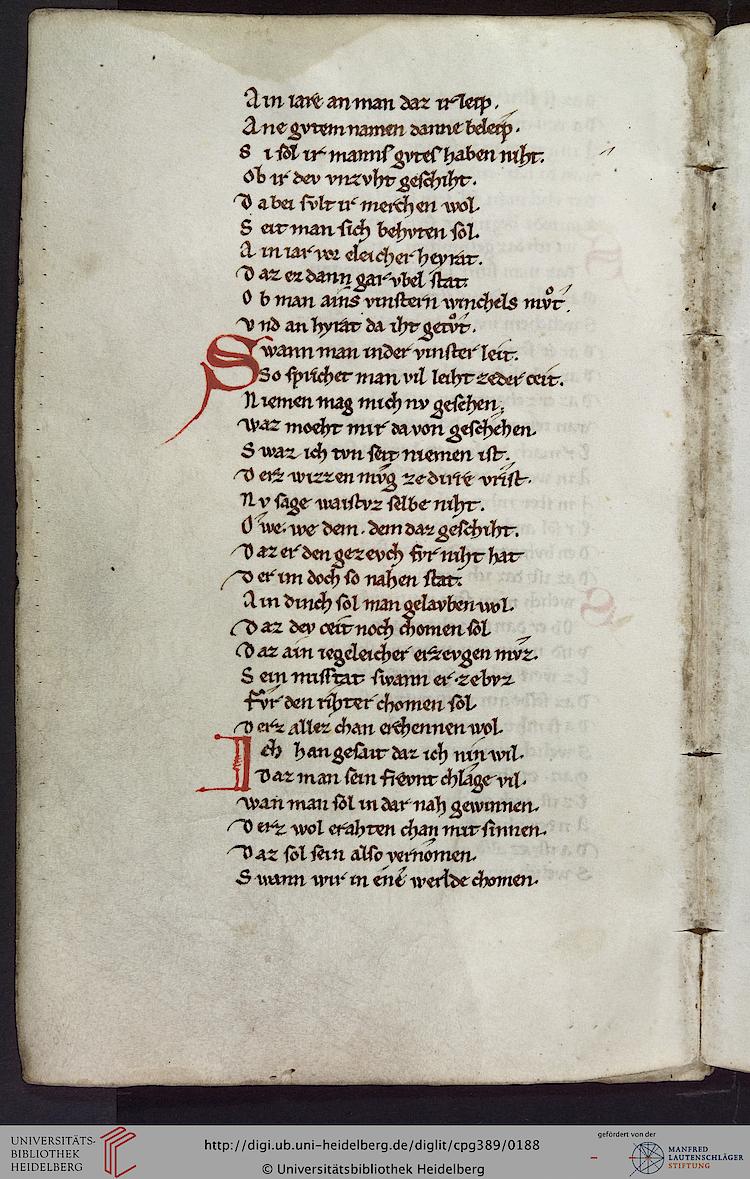 Ain iare an man daz ir leip.
Ane gvtem namen danne beleip.
Si sol ir mannſ gvteſ haben niht.
Ob ir dev vnzvht geschiht.
Da bei ſvlt ir merchen wol.
Seit man ſich behvten ſol.
Ain iar vor eleicher heyrat.
Daz ez dann gar vbel ſtat.
Ob man ainſ vinſtern winchels mvͦt.
Vnd an hyrat da iht getvͦt.
Swann man in der vinſter leit.
So ſprichet man vil leiht ze der ceit.
Niemen mag mich nv geſehen.
Waz moeht mir da von geſchehen.
Swaz ich tvn ſeit niemen iſt.
Derz wizzen mvg ze dirre vriſt.
Nv ſage waiſtvz ſelbe niht.
Owe. we dem. dem daz geſchiht.
Daz er den gezevch fvr niht hat
Der im doch ſo nahen ſtat.
Ain dinch ſol man gelavben wol.
Daz dev ceit noch chomen ſol
Daz ain iegeleicher erzevgen mvz.
Sein miſſtat ſwann er ze bvz
Fvr den rihter chomen ſol
Derz allez chan erchennen wol
Ich han geſait daz ich nin wil.
Daz man ſein frevnt chlage vil.
Wan man ſol in dar nah gewinnen.
Derz wol erahten chan mit ſinnen.
Daz ſol ſein alſo vernomen.
Swann wir in ene werlde chomen.
UNIVERSITÄTS-
BIBLIOTHEK
HEIDELBERG
http://digi.ub.uni-heidelberg.de/diglit/cpg389/0188
© Universitätsbibliothek Heidelberg
gefördert von der
MANFRED
LAUTENSCHLÄGER
STIFTUNG